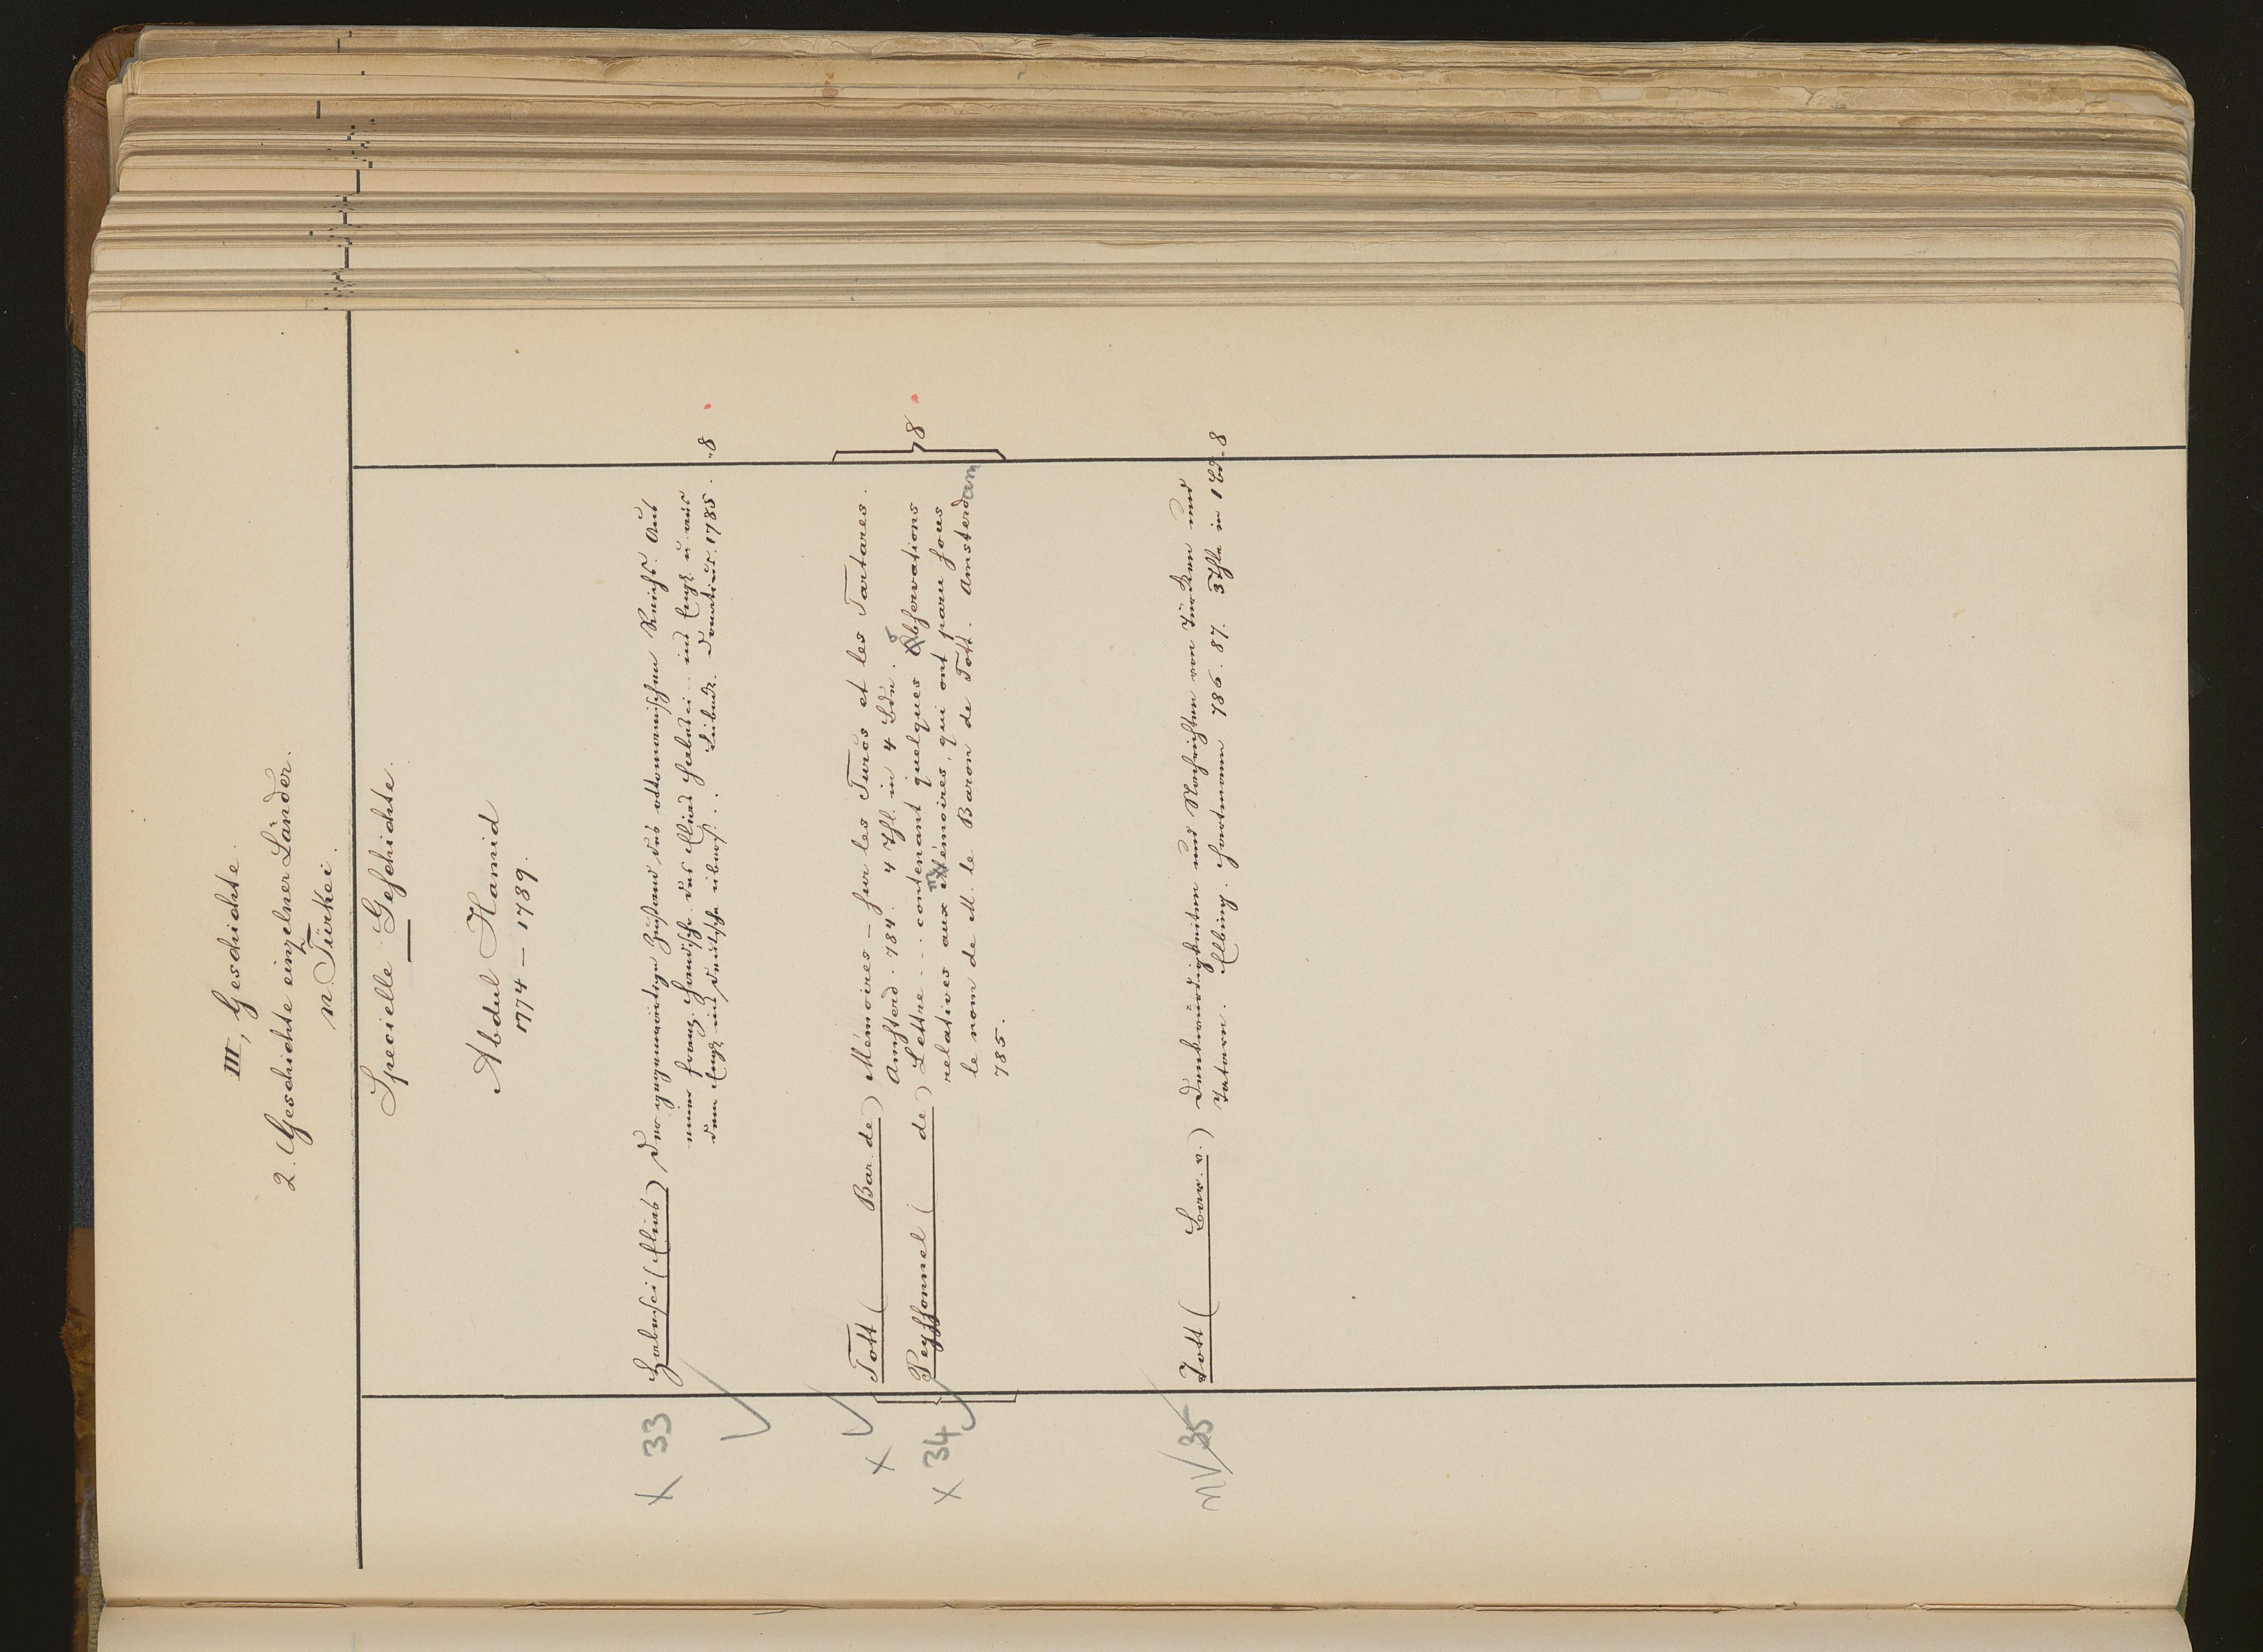 III, Geschichte.
2. Geschichte einzelner Länder.
n. Türkei.
Specielle Geschichte.
Abdul Hamid
1774 – 1789.
x 33 Habesci (Elias) Der gegenwärtige Zustand des ottomanischen Reichs. Aus
einer französ. Handschr. des Elias Habesci .. ins Engl. u. aus
dem Engl. ins Deutsche übers. .. Lübeck. Donatius. 1785. 8
x Tott ( Bar. de) Mémoires – sur les Turcs et les Tartares.
Amsterd. 784. 4 Thl. in 4 Bdn.
x 34 Peyssonnel ( de) Lettre .. contenant quelques observations
relatives aux mémoires, qui ont paru sous
le nom de M. le Baron de Tott. Amsterdam
785.
8
NV 35 Tott ( Bar. v.) Denkwürdigkeiten und Nachrichten von Türken und
Tatarn. Elbing. Hartmann 786. 87. 3 Thle in 1 Bd. 8